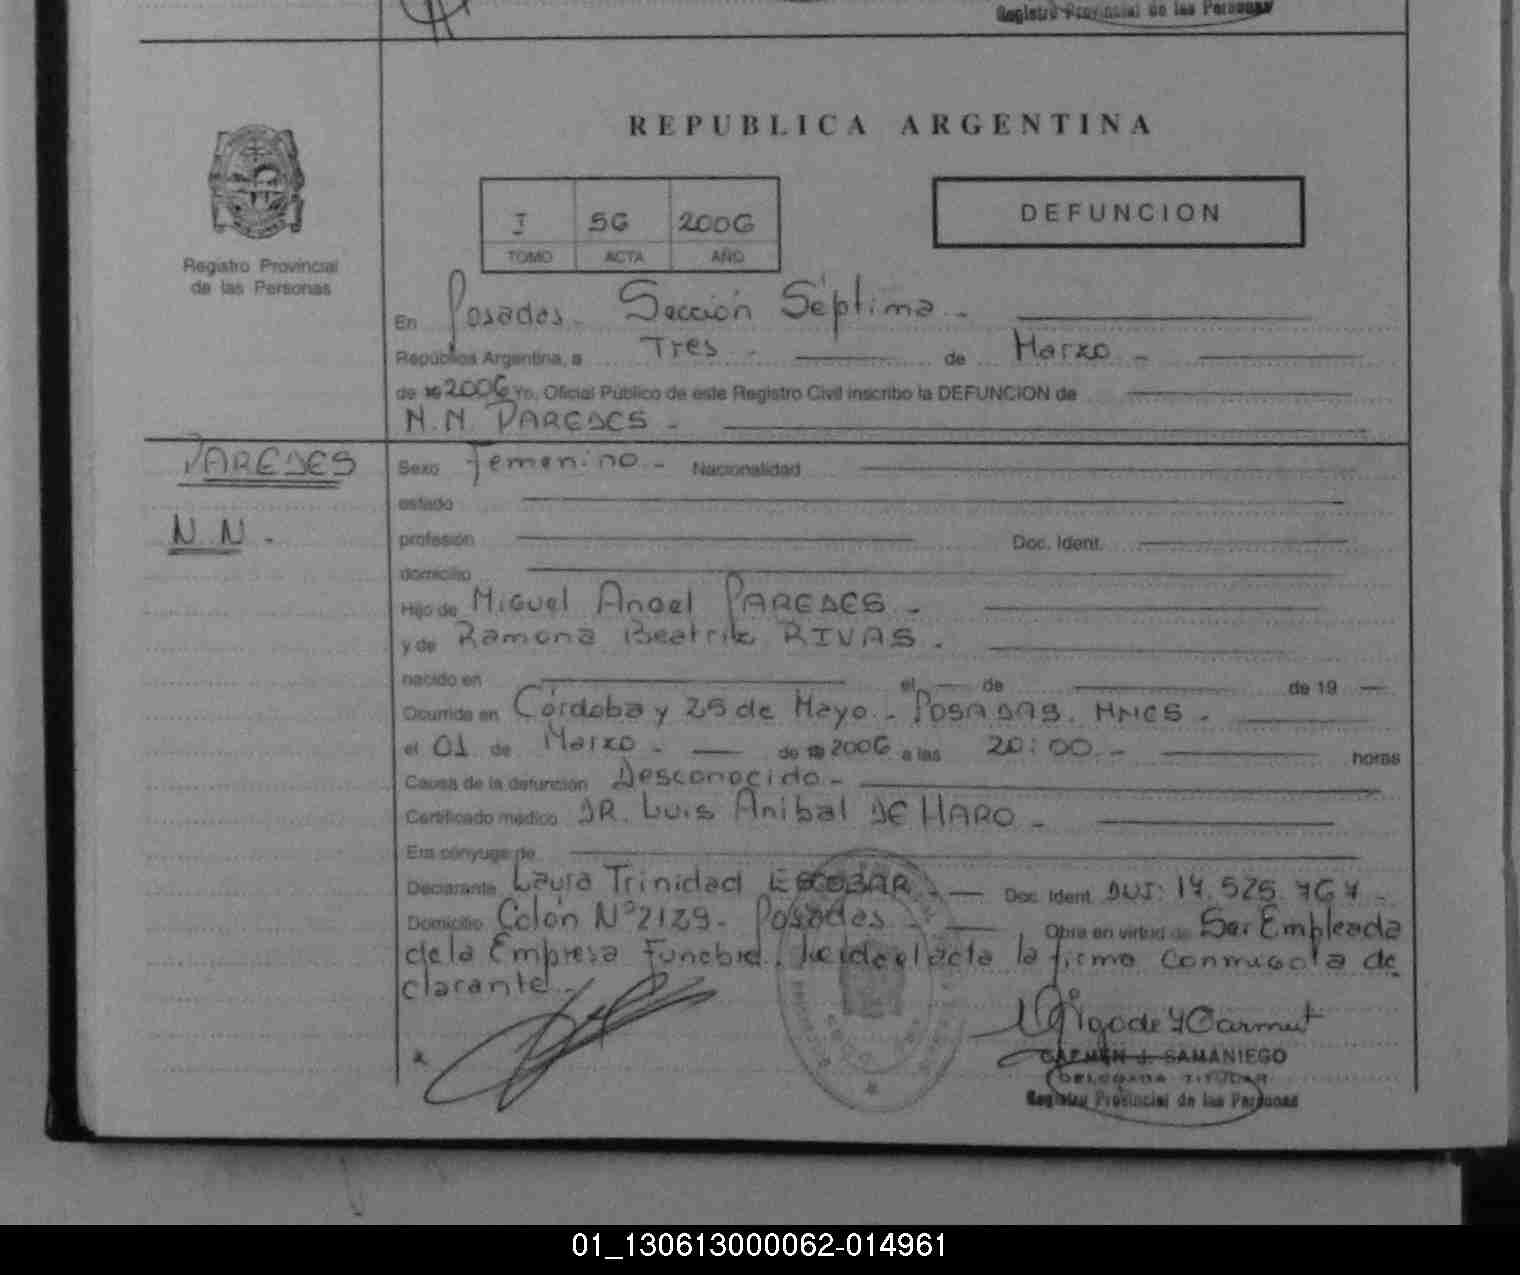 Registro Provincial de las Personas
REPUBLICA ARGENTINA
I 56 2006
TOMO ACTA AÑO
DEFUNCION
Registro Provincial
de las Personas
En Posadas - Sección Séptima -
República Argentina, a Tres - de Marzo -
de 19 2006 Yo, Oficial Público de este Registro Civil inscribo la DEFUNCION de
N.N. PAREDES -
PAREDES
N.N -
Sexo Femenino - Nacionalidad
estado
profesión Doc. Ident.
domicilio
Hijo de Miguel Angel PAREDES -
y de Ramona Beatriz RIVAS.
nacido en el de de 19
Ocurrida en Córdoba y 25 de Mayo - POSADAS. MNES -
el 01 de Marzo - de 19 2006 a las 20:00 - horas
Causa de la defunción Desconocido -
Certificado médico DR. Luis Anibal DE HARO -
Era cónyuge de
Declarante Laura Trinidad ESCOBAR - Doc. Ident. DUI: 17.525.767 -
Domicilio Colón Nº 2129 - Posadas - Obra en virtud de Ser Empleada
de la Empresa Funebre. Leida el acta la firma conmigo la de
clarante -
CARMEN J. SAMANIEGO
DELEGADA TITULAR
Registro Provincial de las Personas
01_130613000062-014961